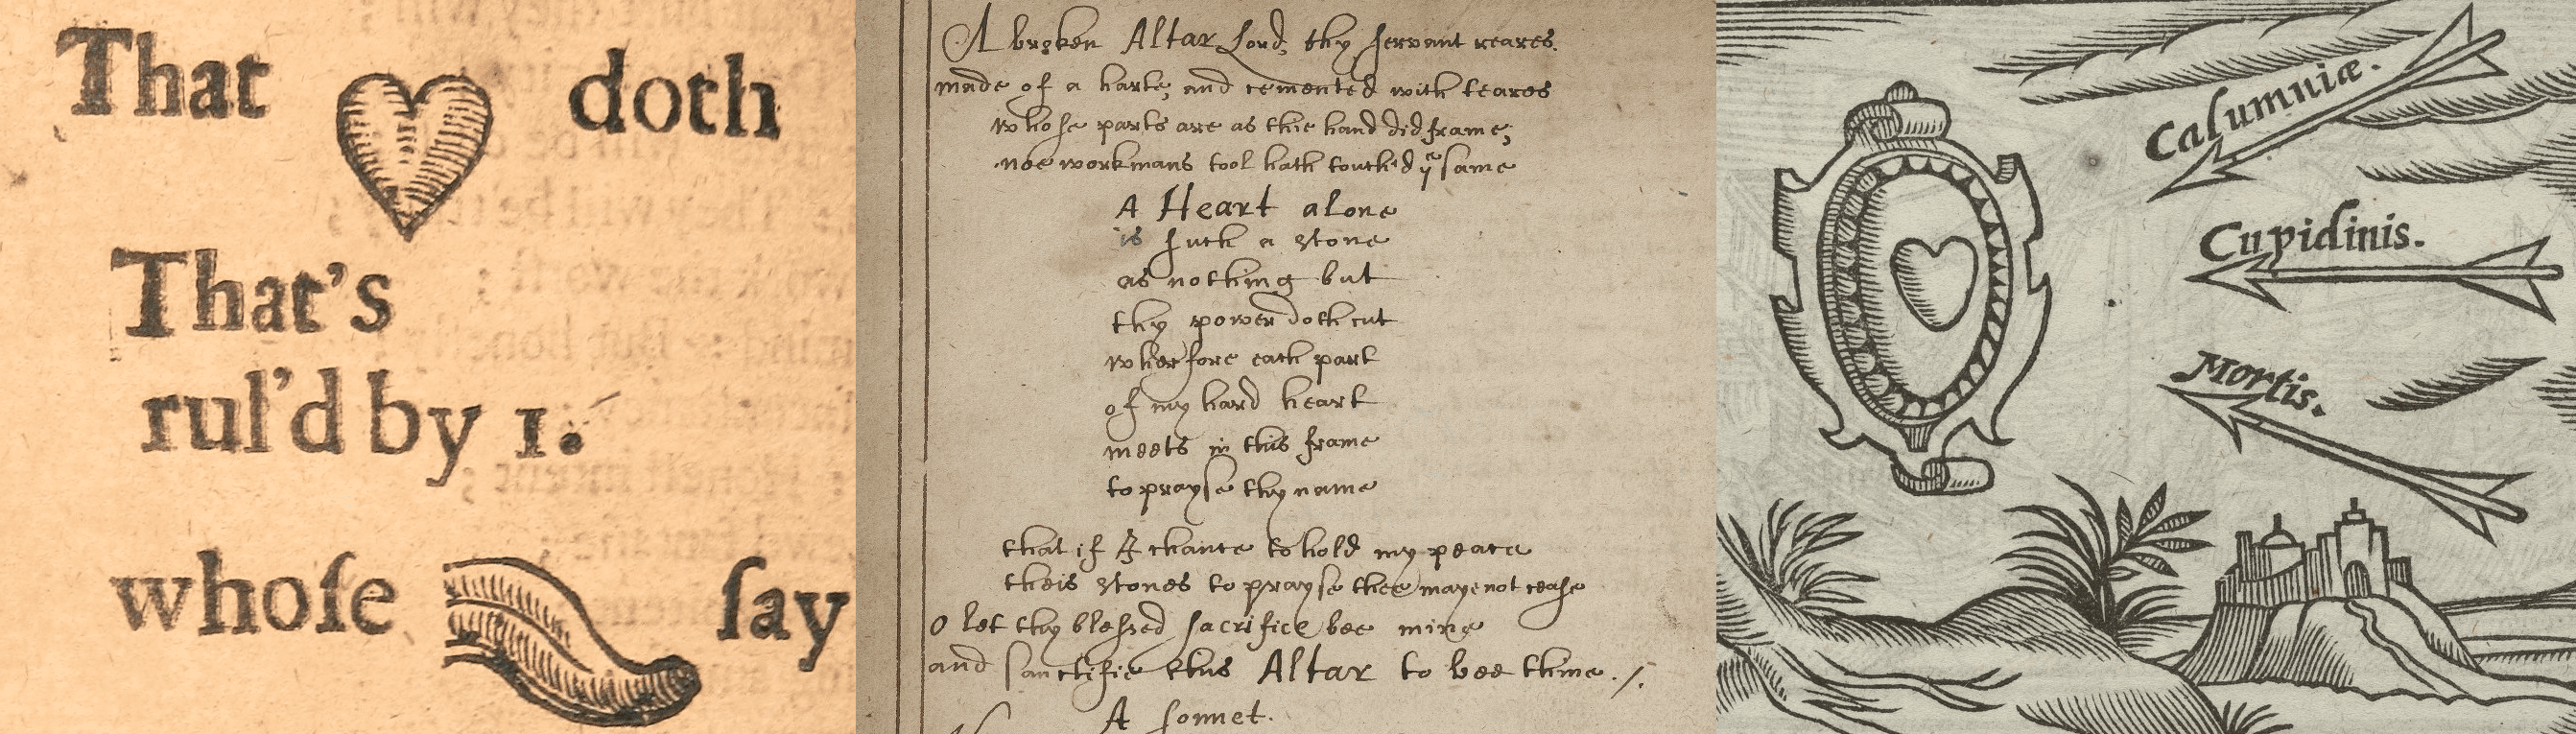 That doth
That's
rul'd by 1.
whoſe ſay
A broken Altar Lord, thy ſervant reares.
made of a harte, and cemented with teares
whoſe parts are as thie hand did frame;
noe workmans tool hath touth'd yᵉ ſame
A Heart alone
is ſuch a stone
as nothing but
thy power doth cut
wherfore each part
of my hard heart
meets in this frame
to prayſe thy name
that if I chance to hold my peace
theis stones to prayſe thee maye not ceaſe
O let thy bleſsed ſacrifice bee mine
and ſanctifie this Altar to bee thine ./.
A ſonnet.
Calumniæ.
Cupidinis.
Mortis.